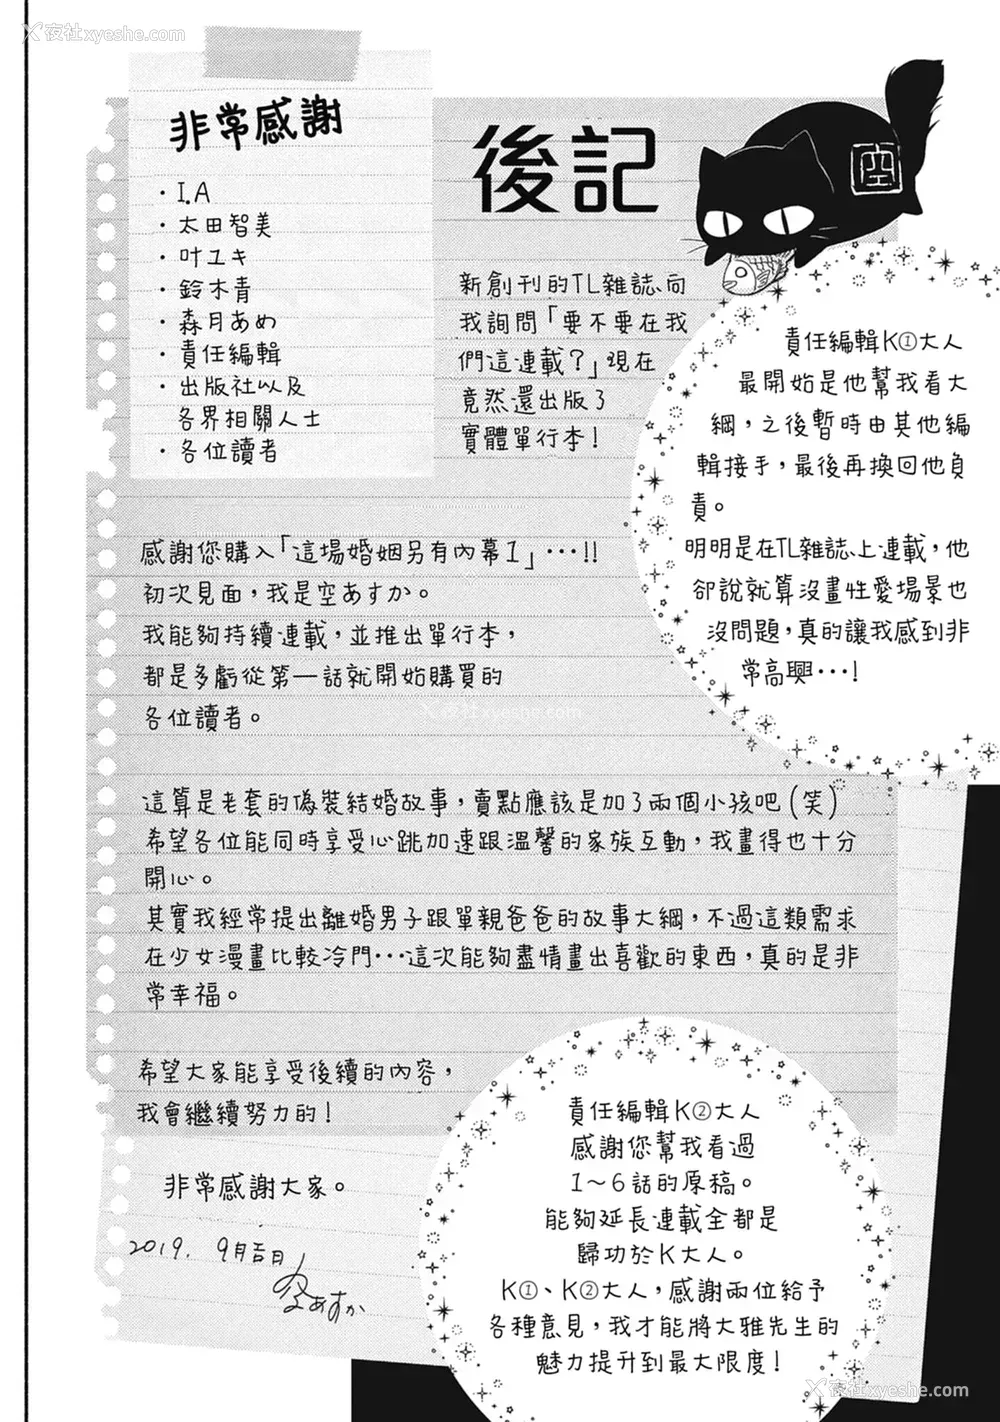 夜社xyeshe.com
非常感謝
・I.A
・太田智美
・叶ユキ
・鈴木青
・森月あめ
・責任編輯
・出版社以及
各界相關人士
・各位讀者
後記
空
新創刊的TL雜誌向
我詢問「要不要在我
們這連載?」現在
竟然還出版了
實體單行本!
責任編輯K①大人
最開始是他幫我看大
綱,之後暫時由其他編
輯接手,最後再換回他負
責。
明明是在TL雜誌上連載,他
卻說就算沒畫性愛場景也
沒問題,真的讓我感到非
常高興⋯!
感謝您購入「這場婚姻另有內幕1」⋯!!
初次見面,我是空あすか。
我能夠持續連載,並推出單行本,
都是多虧從第一話就開始購買的
各位讀者。
夜社xyeshe.com
這算是老套的偽裝結婚故事,賣點應該是加了兩個小孩吧(笑)
希望各位能同時享受心跳加速跟溫馨的家族互動,我畫得也十分
開心。
其實我經常提出離婚男子跟單親爸爸的故事大綱,不過這類需求
在少女漫畫比較冷門⋯這次能夠盡情畫出喜歡的東西,真的是非
常幸福。
希望大家能享受後續的內容,
我會繼續努力的!
非常感謝大家。
2019. 9月吉日
空あすか
責任編輯K②大人
感謝您幫我看過
1~6話的原稿。
能夠延長連載全都是
歸功於K大人。
K①、K②大人,感謝兩位給予
各種意見,我才能將大雅先生的
魅力提升到最大限度!
夜社xyeshe.com